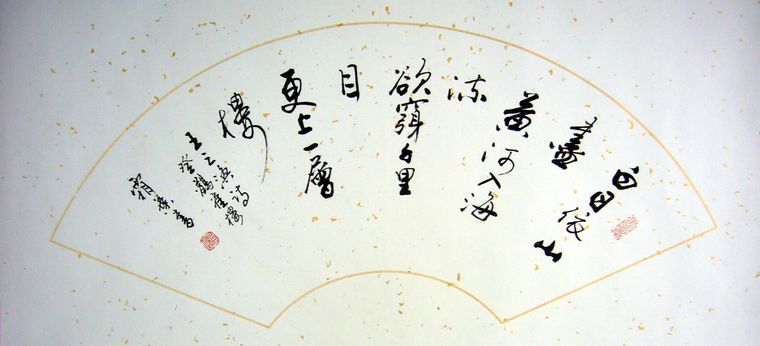 白日依山
盡
黃河入海
流
欲窮千里
目
更上一層
樓
王之渙詩
登鸛雀樓
書